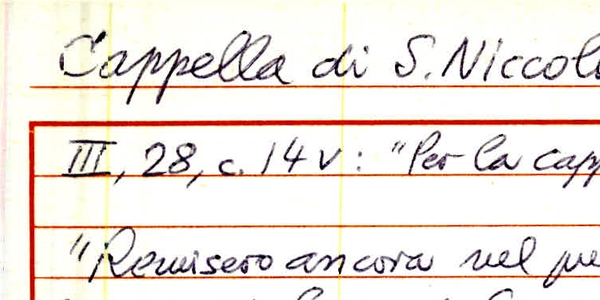 Cappella di S. Niccolò
III, 28, c. 14v: "Per la capp
"Remisero ancora nel pre